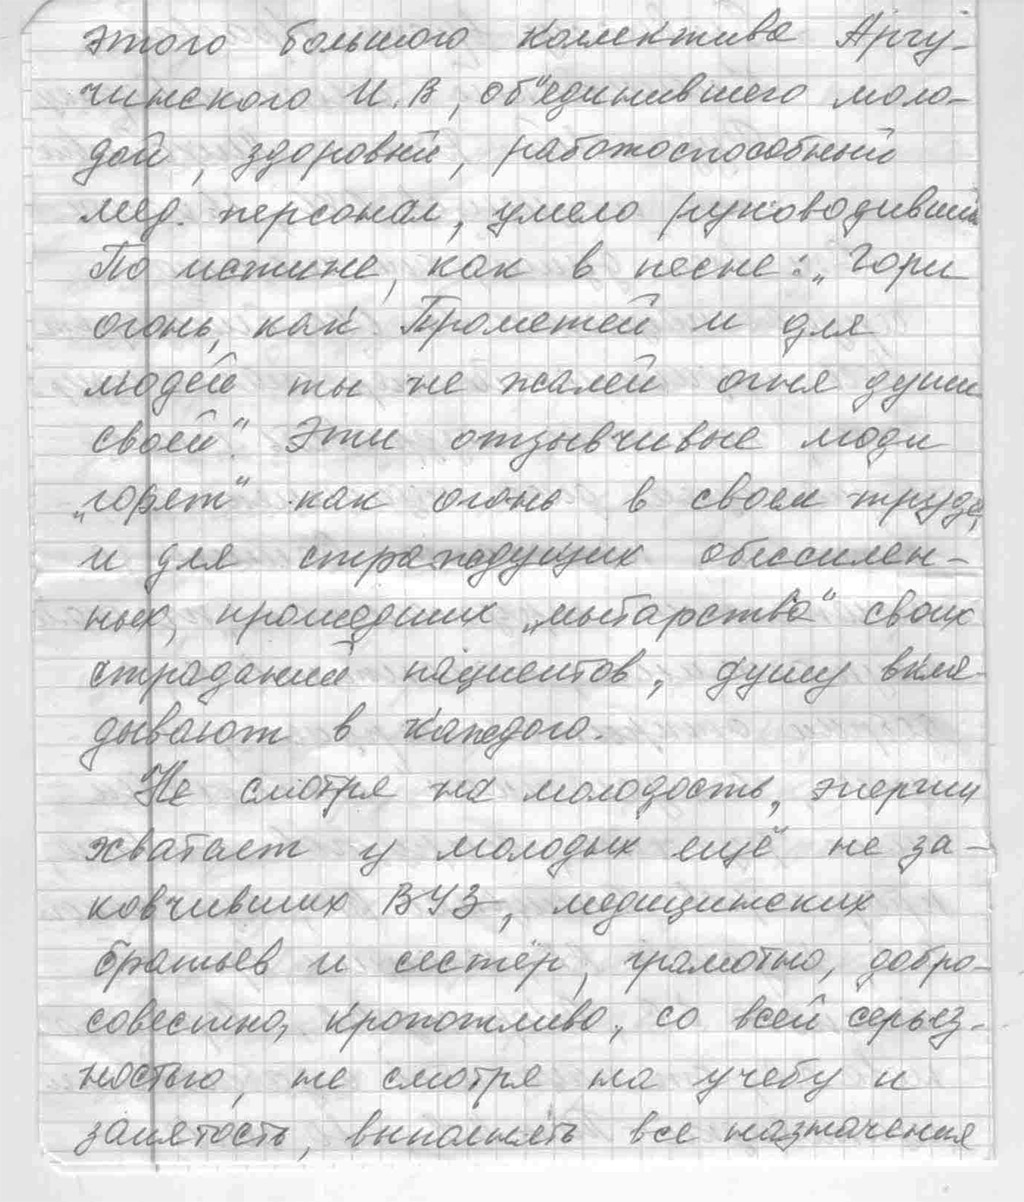 этого большого коллектива Аргу-
чинского И.В, об"единившего моло-
дой, здоровый, работоспособный
мед. персонал, умело руководивший
По истине, как в песне: „Гори
огонь, как Прометей и для
людей ты не жалей огня души
своей". Эти отзывчивые люди
„горят" как огонь в своем труде,
и для страждущих обессилен-
ных, прошедших „мытарства" своих
страданий пациентов, душу вкла-
дывают в каждого.
Не смотря на молодость, энергии
хватает у молодых ещё не за-
ковчивших ВУЗ, медицинских
братьев и сестёр, грамотно, добро-
совестно, кропотливо, со всей серьез-
ностью, не смотря на учебу и
занятость, выполнять все назначения